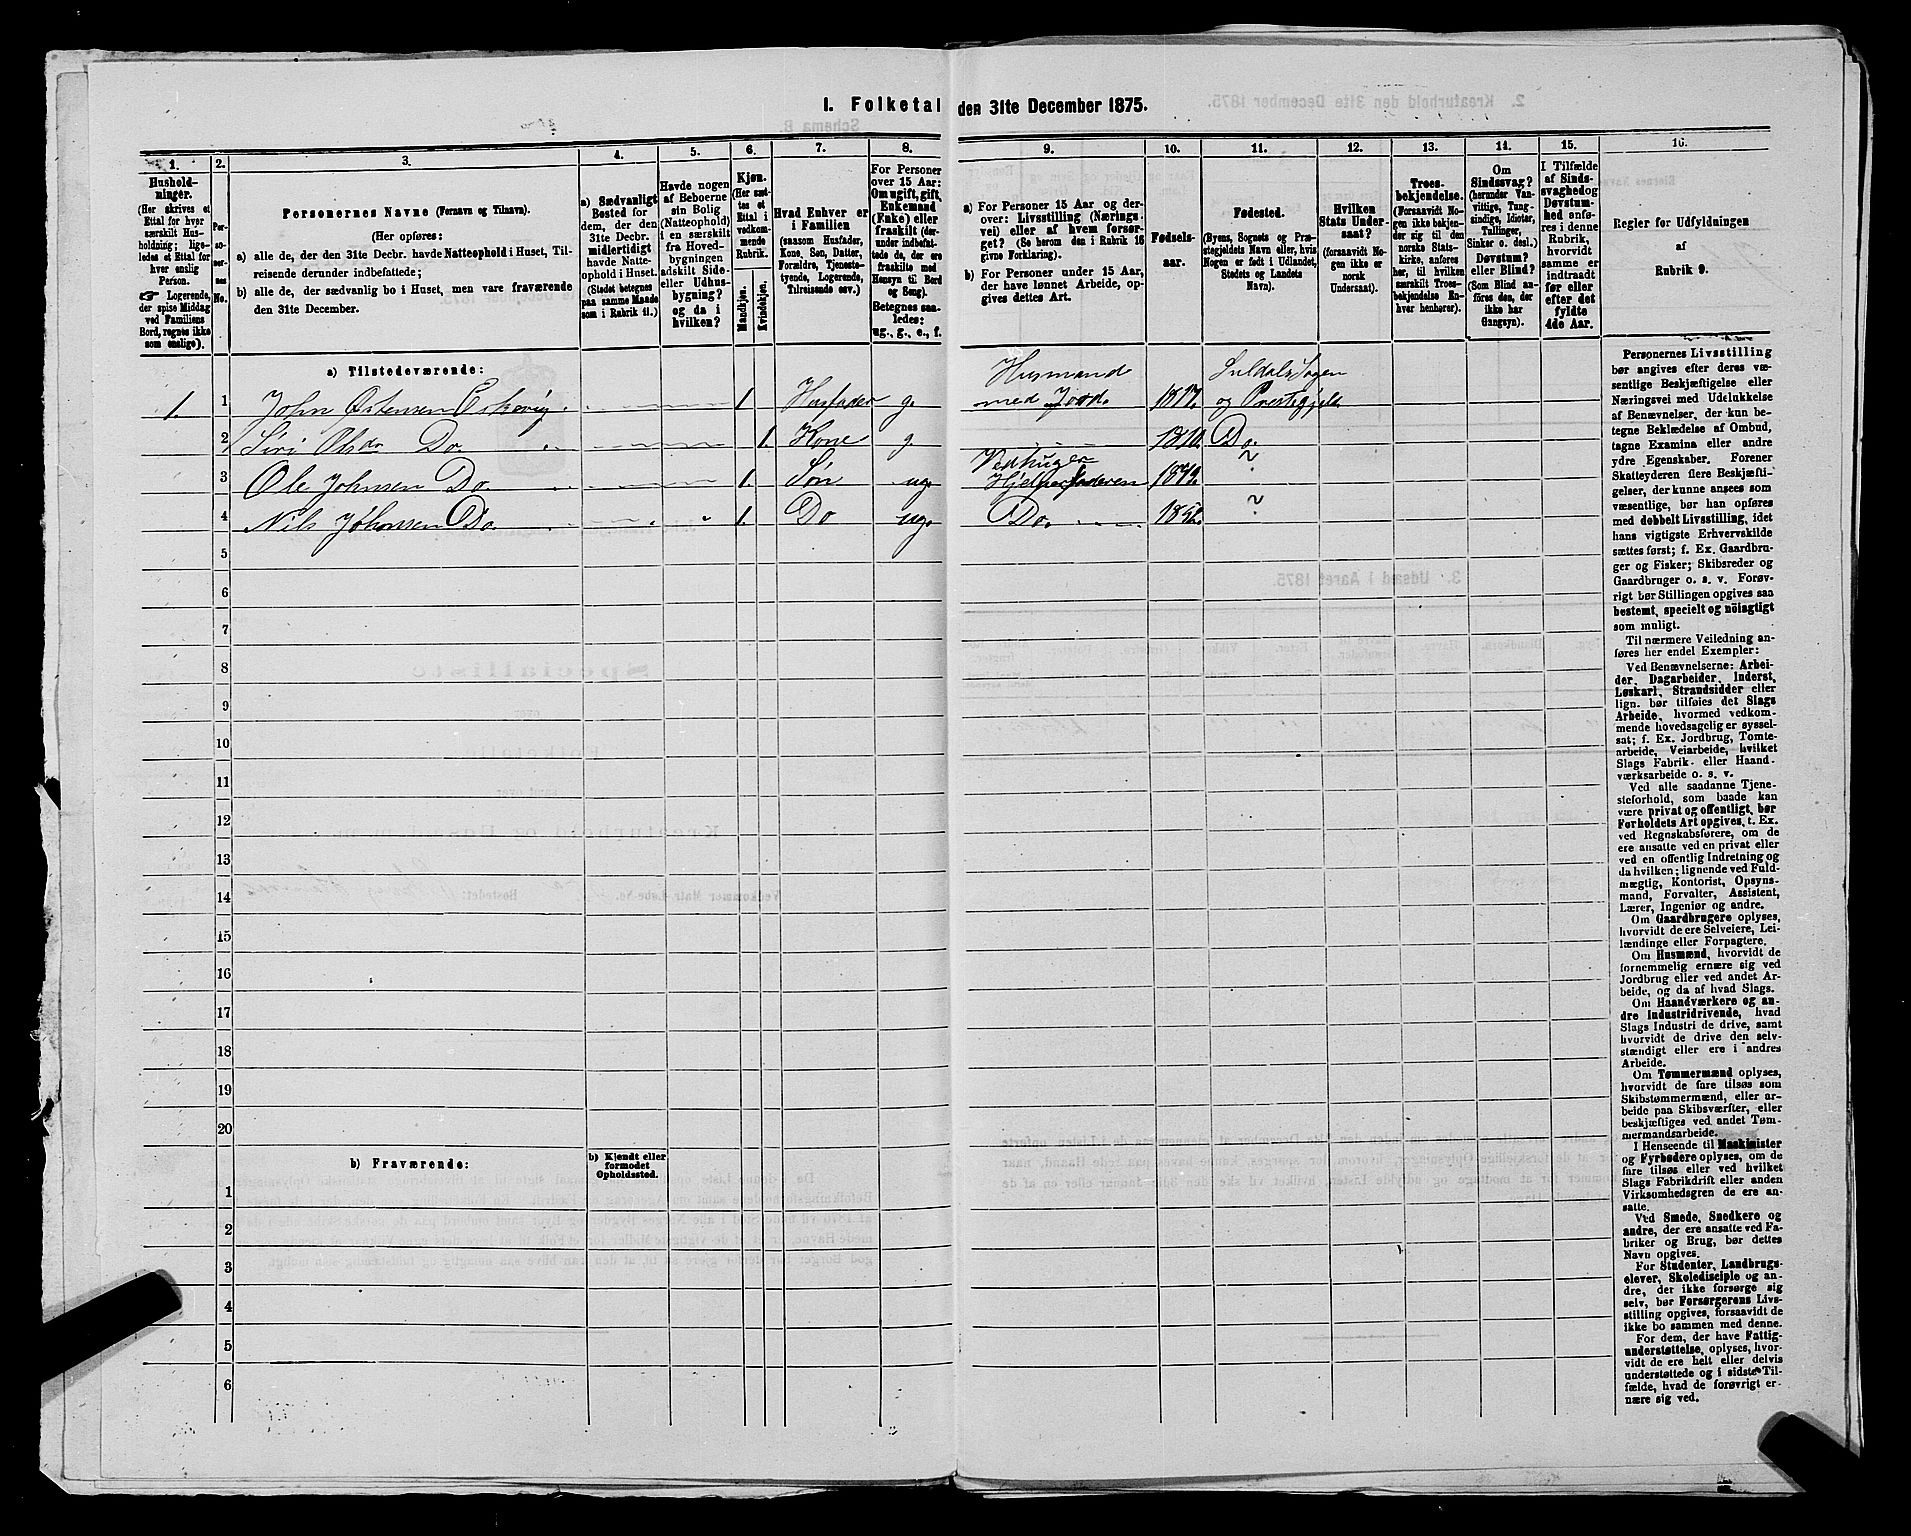 1. Folketal den 31te December 1875.
1.
2.
3.
4.
5.
6.
7.
8.
9.
10.
11.
12.
13.
14.
15.
16.
Husholdninger.
(Her skrives et
Ettal for hver
særskilt Husholdning;
ligeledes et Ettal for
hver enslig
Person.
☞ Logerende,
der spise Middag
ved Familiens
Bord, regnes ikke
som enslige).
Personernes No.
Personernes Navne (Fornavn og Tilnavn).
(Her opføres:
a) alle de, der den 31te Decbr. havde Natteophold i Huset, Tilreisende derunder indbefattede;
b) alle de, der sædvanlig bo i Huset, men vare fraværende
den 31te December.
a) Sædvanligt
Bosted for
dem, der den
31te Decbr.
midlertidigt
havde Natteophold i Huset.
(Stedet betegnes
paa samme Maade
som i Rubrik 11.)
Havde nogen
af Beboerne
sin Bolig
(Natteophold)
i en særskilt
fra Hovedbygningen
adskilt Side-
eller Udhusbygning?
og da i
hvilken?
Kjøn.
(Her sættes et
Ettal i
vedkommende
Rubrik.
Mandkjøn.
Kvindekjøn.
Hvad Enhver er
i Familien
(saasom Husfader,
Kone, Søn, Datter,
Forældre, Tjenestetyende, Logerende,
Tilreisende osv.)
For Personer
over 15 Aar:
Om ugift, gift,
Enkemand
(Enke) eller
fraskilt (derunder indbefattede de, der ere
fraskilte med
Hensyn til Bord
og Seng).
Betegnes saaledes:
ug., g., e., f.
a) For Personer 15 Aar og derover: Livsstilling (Næringsvei) eller af hvem forsørget? (Se herom den i Rubrik 16
givne Forklaring).
b) For Personer under 15 Aar,
der have lønnet Arbeide, opgives dettes Art.
Fødselsaar.
Fødested.
(Byens, Sognets og Præstegjeldets Navn eller, hvis
Nogen er født i Udlandet,
Stedets og Landets
Navn).
Hvilken
Stats Undersaat?
(forsaavidt Nogen ikke er
norsk
Undersaat).
Troesbekjendelse.
(Forsaavidt Nogen ikke bekjender sig til den
norske Statskirke, anføres
her, til hvilken
særskilt Troesbekjendelse Enhver henhører).
Om
Sindssvag?
(herunder Vanvittige, Tungsindige, Idioter,
Tullinger,
Sinker o. desl.)
Døvstum?
eller Blind?
(Som Blind anføres den, der
ikke har
Gangsyn).
I Tilfælde
af Sindssvaghed og
Døvstumhed anføres i denne
Rubrik,
hvorvidt
samme er
indtraadt
før eller
efter det
fyldte
4de Aar.
Regler for Udfyldningen
af
Rubrik 9.
a) Tilstedeværende:
1. 1 John Østensen Eskevig 1. Husfader g. Husmand med Jord. 1817. Suldals Sogn og Præstegjeld
2 Siri Olsdr Do 1. Kone g. 1810. Do.
3 Ole Johnsen Do 1. Søn ug. Vedhuger Hjelper Faderen 1849. ~
4 Nils Johnsen Do 1. Do ug. Do. 1852. ~
5
6
7
8
9
10
11
12
13
14
15
16
17
18
19
20
b) Fraværende:
b) Kjendt eller
formodet
Opholdssted.
1
2
3
4
5
6
Personernes Livsstilling
bør angives efter deres væsentlige Beskjæftigelse eller
Næringsvei med Udelukkelse
af Benævnelser, der kun betegne Beklædelse af Ombud,
tagne Examina eller andre
ydre Egenskaber. Forener
Skatteyderen flere Beskjæftigelser, der kunne ansees som
væsentlige, bør han opføres
med dobbelt Livsstilling, idet
hans vigtigste Erhvervskilde
sættes først; f. Ex. Gaardbruger og Fisker; Skibsreder og
Gaardbruger o. s. v. Forøvrigt bør Stillingen opgives saa
bestemt, specielt og nöiagtigt
som muligt.
Til nærmere Veiledning anføres her endel Exempler:
Ved Benævnelserne: Arbeider, Dagarbeider, Inderst,
Løskarl, Strandsidder eller
lign. bør tilføies det Slags
Arbeide, hvormed vedkommende hovedsagelig er sysselsat; f. Ex. Jordbrug, Tomtearbeide, Veiarbeide, hvilket
Slags Fabrik- eller Haandværksarbeide o. s. v.
Ved alle saadanne Tjenesteforhold, som baade kan
være privat og offentligt, bør
Forholdets Art opgives, t. Ex.
ved Regnskabsførere, om de
ere ansatte ved en privat eller
ved en offentlig Indretning og
da hvilken; lignende ved Fuldmægtig, Kontorist, Opsynsmand, Forvalter, Assistent,
Lærer, Ingeniør og andre.
Om Gaardbrugere oplyses,
hvorvidt de ere Selveiere, Leilændinge eller Forpagtere.
Om Husmænd, hvorvidt de
fornemmelig ernære sig ved
Jordbrug eller ved andet Arbeide, og da af hvad Slags.
Om Haandværkere og andre Industridrivende, hvad
Slags Industri de drive, samt
hvorvidt de drive den selvstændigt eller ere i andres
Arbeide.
Om Tømmermænd oplyses,
hvorvidt de fare tilsøs som
Skibstømmermænd, eller arbeide paa Skibsværfter, eller
beskjæftiges ved andet Tømmermandsarbeide.
I Henseende til Maskinister
og Fyrbødere oplyses, om de
fare tilsøs eller ved hvilket
Slags Fabrikdrift eller anden
Virksomhedsgren de ere ansatte.
Ved Smede, Snedkere og
andre, der ere ansatte ved Fabriker og Brug, bør dettes
Navn opgives.
For Studenter, Landbrugselever, Skoledisciple og andre, der ikke forsørge sig
selv, bør Forsørgerens Livsstilling opgives, forsaavidt de
ikke bo sammen med denne.
For dem, der have Fattigunderstøttelse, oplyses, hvorvidt de ere helt eller delvis
understøttede og i sidste Tilfælde, hvad de forøvrigt ernære sig ved.